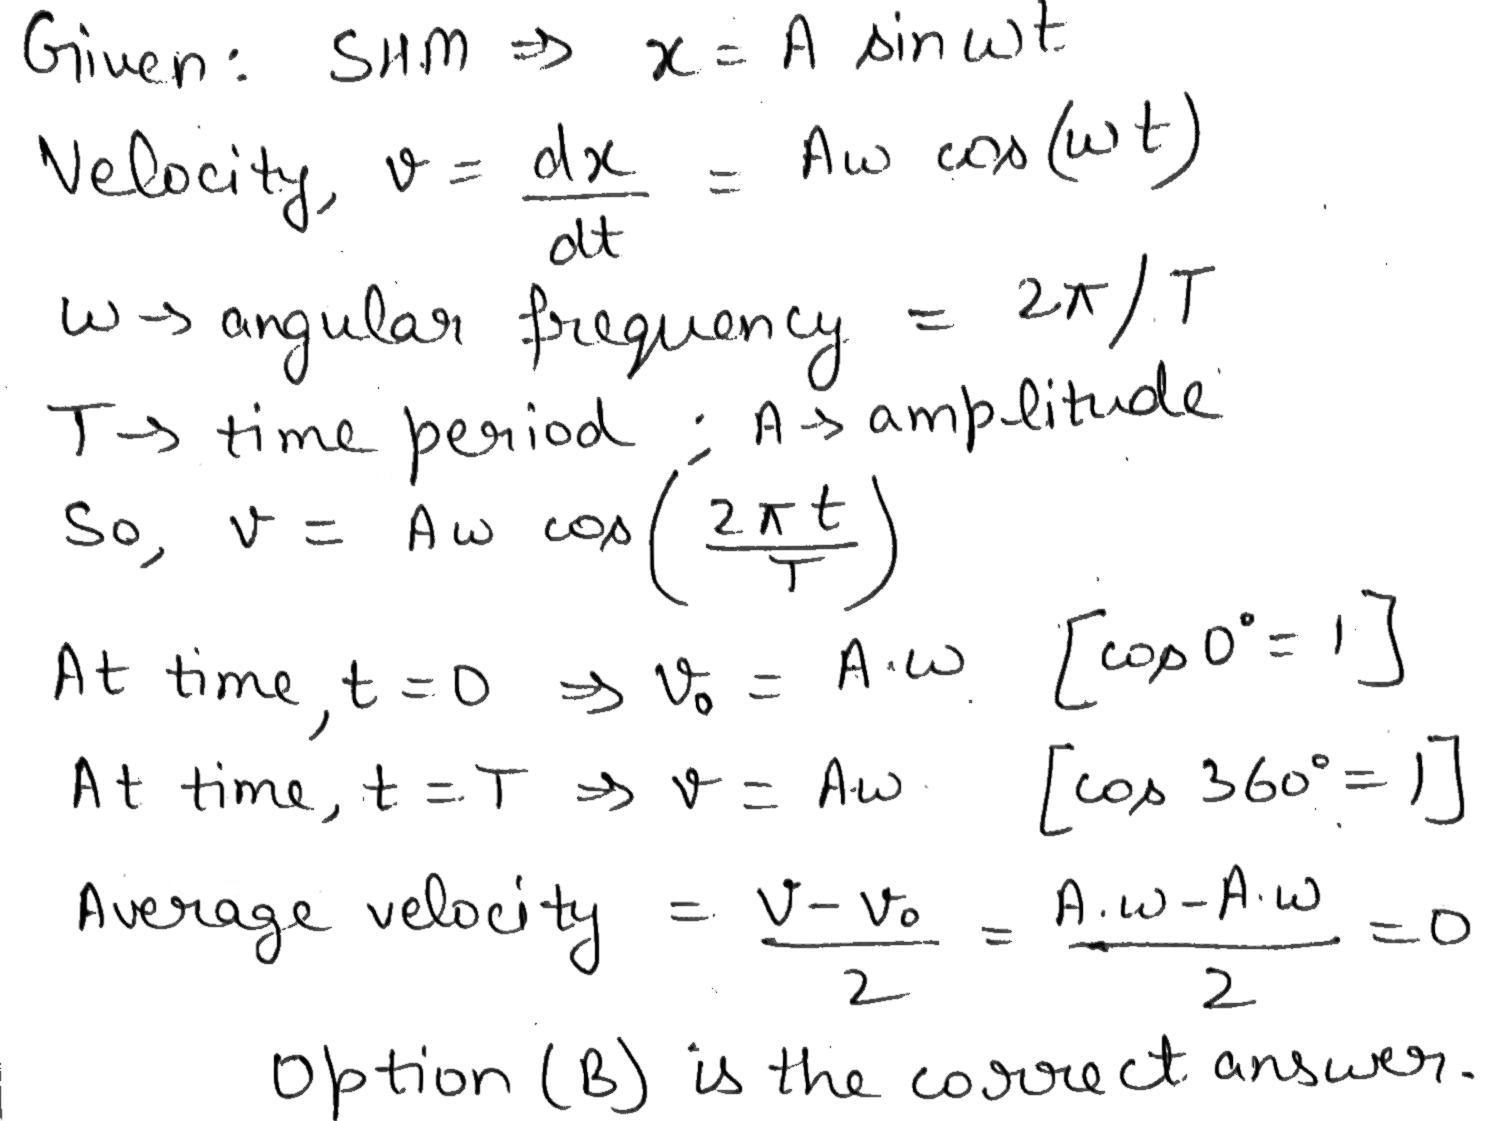 Given: SHM ⇒ x = A sin ωt
Velocity, v = dx/dt = Aω cos (ωt)
ω → angular frequency = 2π/T
T → time period ; A → amplitude
So, v = Aω cos (2πt/T)
At time, t = 0 ⇒ v₀ = A.ω [cos 0° = 1]
At time, t = T ⇒ v = Aω [cos 360° = 1]
Average velocity = (v - v₀)/2 = (A.ω - A.ω)/2 = 0
Option (B) is the correct answer.